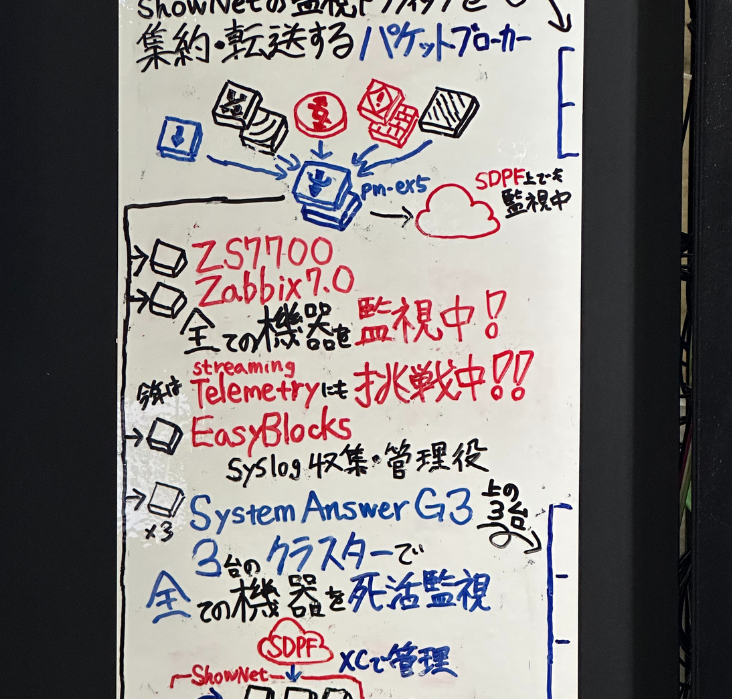 ShowNetの監視トラフィックを
集約・転送するパケットブローカー
pm-ex5
SDPF上でも
監視中
ZS7700
Zabbix7.0
全ての機器を監視中!
今年は streaming
Telemetryにも挑戦中!!
EasyBlocks
syslog収集・管理役
x3
System Answer G3
上の
3台
3台のクラスターで
全ての機器を死活監視
SDPF
XCで管理
ShowNet